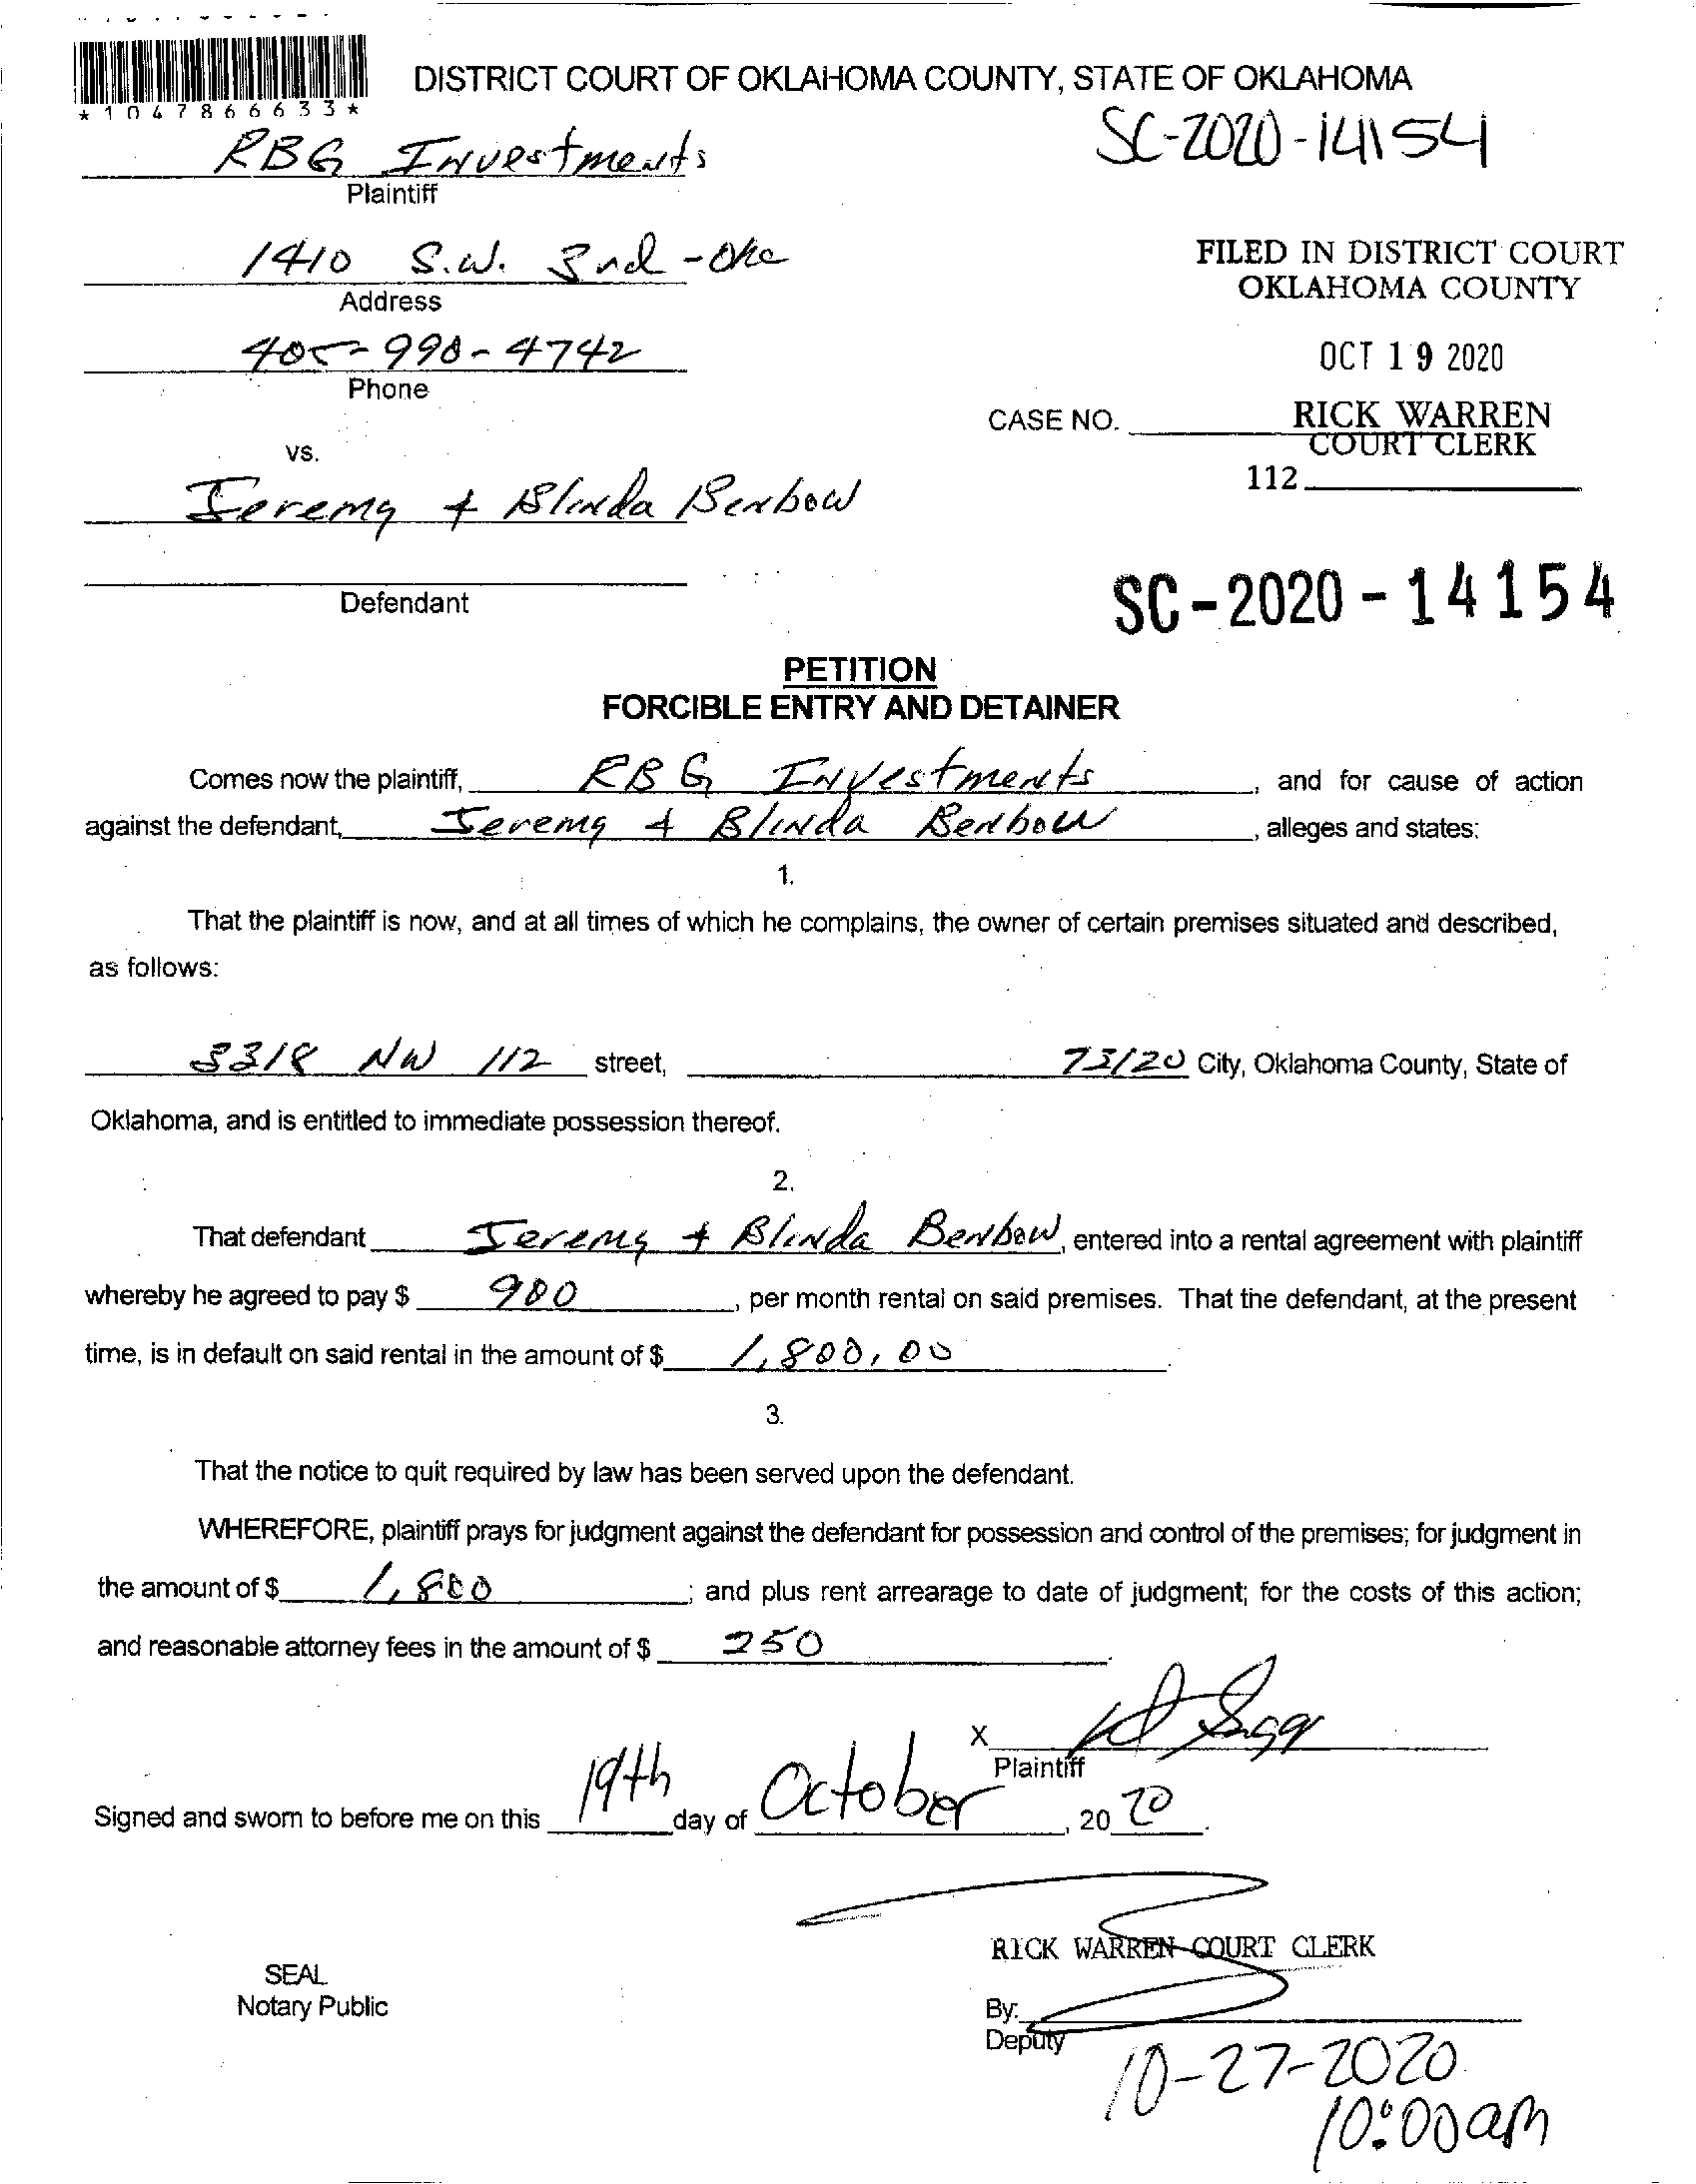 *1047866633*
DISTRICT COURT OF OKLAHOMA COUNTY, STATE OF OKLAHOMA
SC-2020-14154
RBG Investments
Plaintiff
1410 S.W. 3nd - Okc
Address
FILED IN DISTRICT COURT
OKLAHOMA COUNTY
405-990-4742
Phone
OCT 19 2020
CASE NO.
RICK WARREN
COURT CLERK
vs.
112
Jeremy + Blinda Benbow
Defendant
SC-2020-14154
PETITION
FORCIBLE ENTRY AND DETAINER
Comes now the plaintiff, RBG Investments, and for cause of action
against the defendant, Jeremy + Blinda Benbow, alleges and states:
1.
That the plaintiff is now, and at all times of which he complains, the owner of certain premises situated and described,
as follows:
3318 NW 112 street, 73120 City, Oklahoma County, State of
Oklahoma, and is entitled to immediate possession thereof.
2.
That defendant Jeremy + Blinda Benbow, entered into a rental agreement with plaintiff
whereby he agreed to pay $ 900, per month rental on said premises. That the defendant, at the present
time, is in default on said rental in the amount of $ 1,800,00.
3.
That the notice to quit required by law has been served upon the defendant.
WHEREFORE, plaintiff prays for judgment against the defendant for possession and control of the premises; for judgment in
the amount of $ 1,800; and plus rent arrearage to date of judgment; for the costs of this action;
and reasonable attorney fees in the amount of $ 250.
X
Plaintiff
Signed and sworn to before me on this 19th day of October, 2020.
RICK WARREN COURT CLERK
SEAL
Notary Public
By:
Deputy
10-27-2020
10:00am